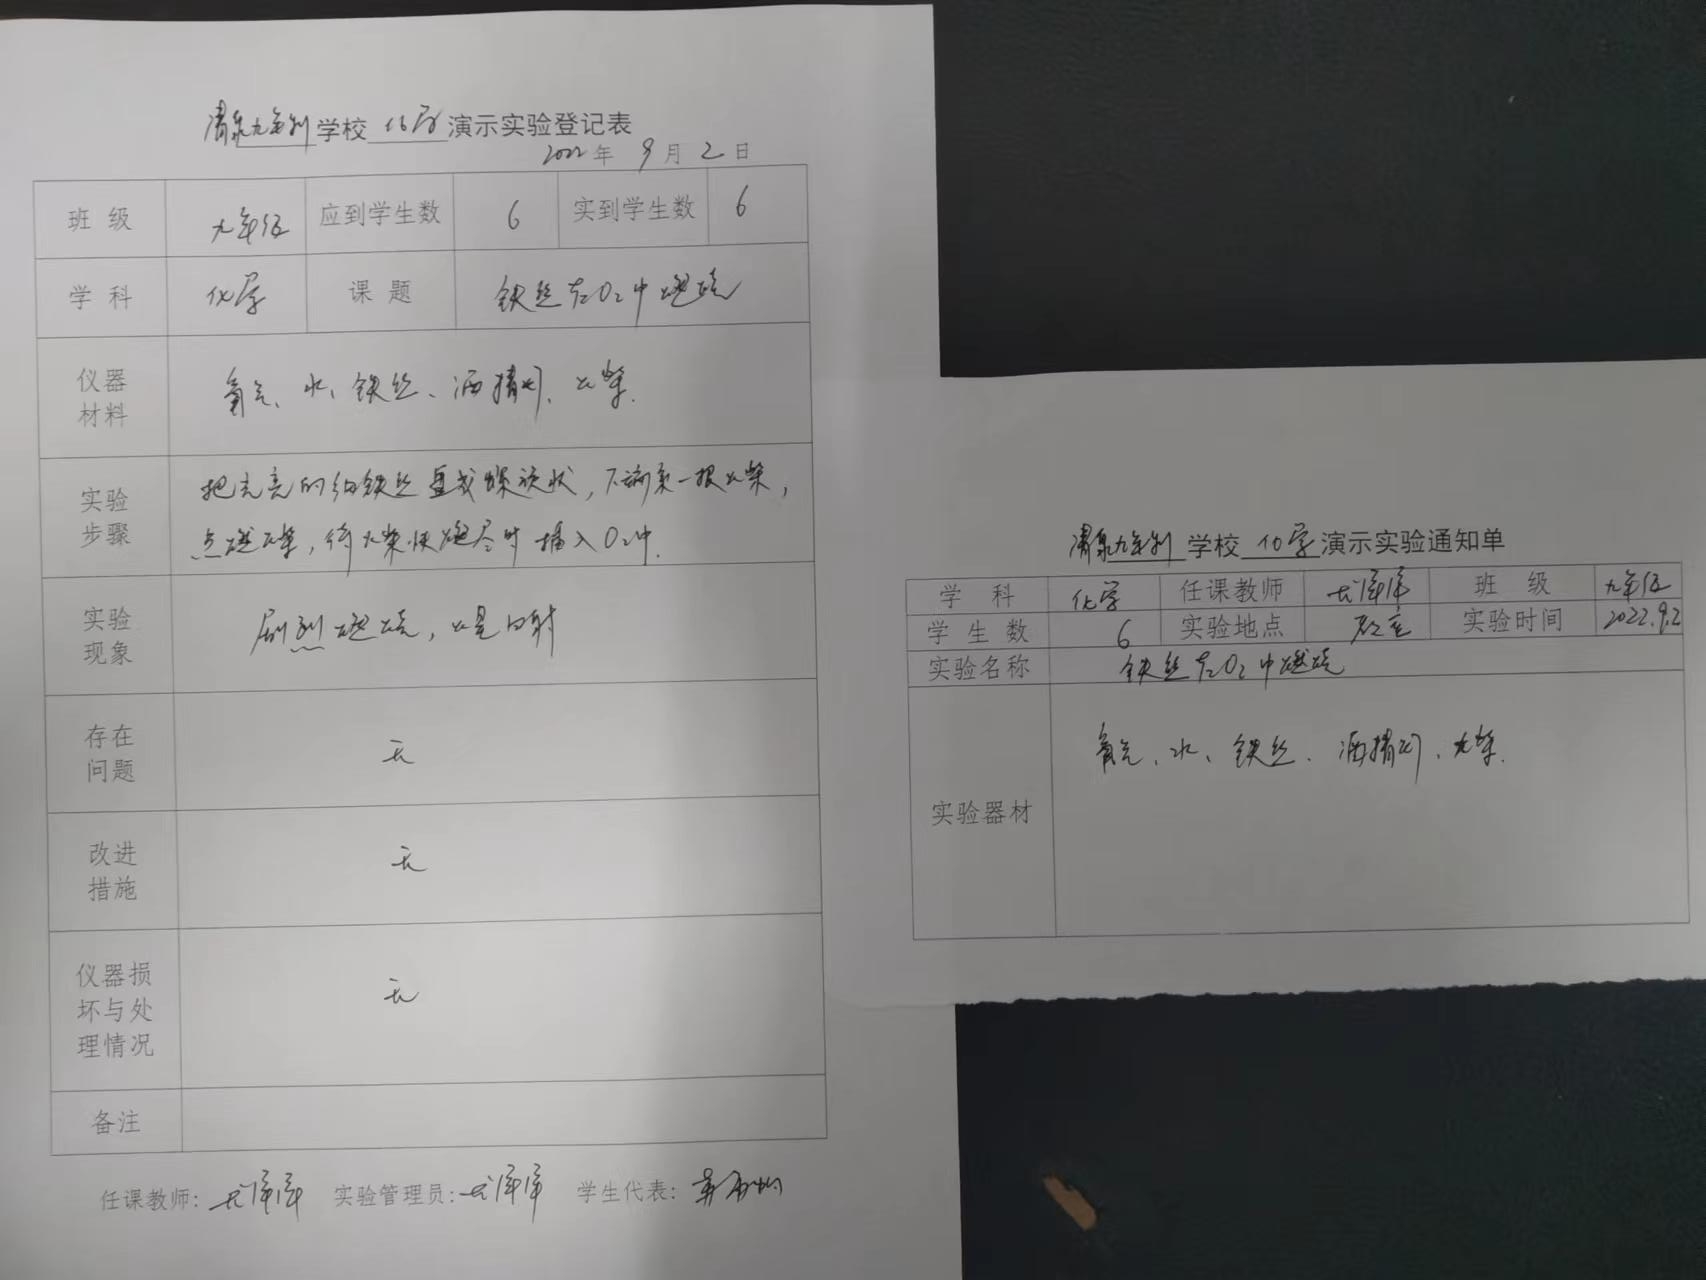 清泉九年制学校 化学 演示实验登记表
2022年 9月 2日
班 级 九年级 应到学生数 6 实到学生数 6
学 科 化学 课 题 铁丝在O2中燃烧
仪器
材料
氧气、水、铁丝、酒精灯、火柴.
实验
步骤
把光亮的细铁丝盘成螺旋状，下端系一根火柴，
点燃火柴，待火柴快燃尽时插入O2中.
实验
现象
剧烈燃烧，火星四射
存在
问题
无
改进
措施
无
仪器损
坏与处
理情况
无
备注
任课教师: 实验管理员: 学生代表:
清泉九年制 学校 化学 演示实验通知单
学 科 化学 任课教师 班 级 九年级
学 生 数 6 实验地点 教室 实验时间 2022.9.2
实验名称 铁丝在O2中燃烧
实验器材
氧气、水、铁丝、酒精灯、火柴.